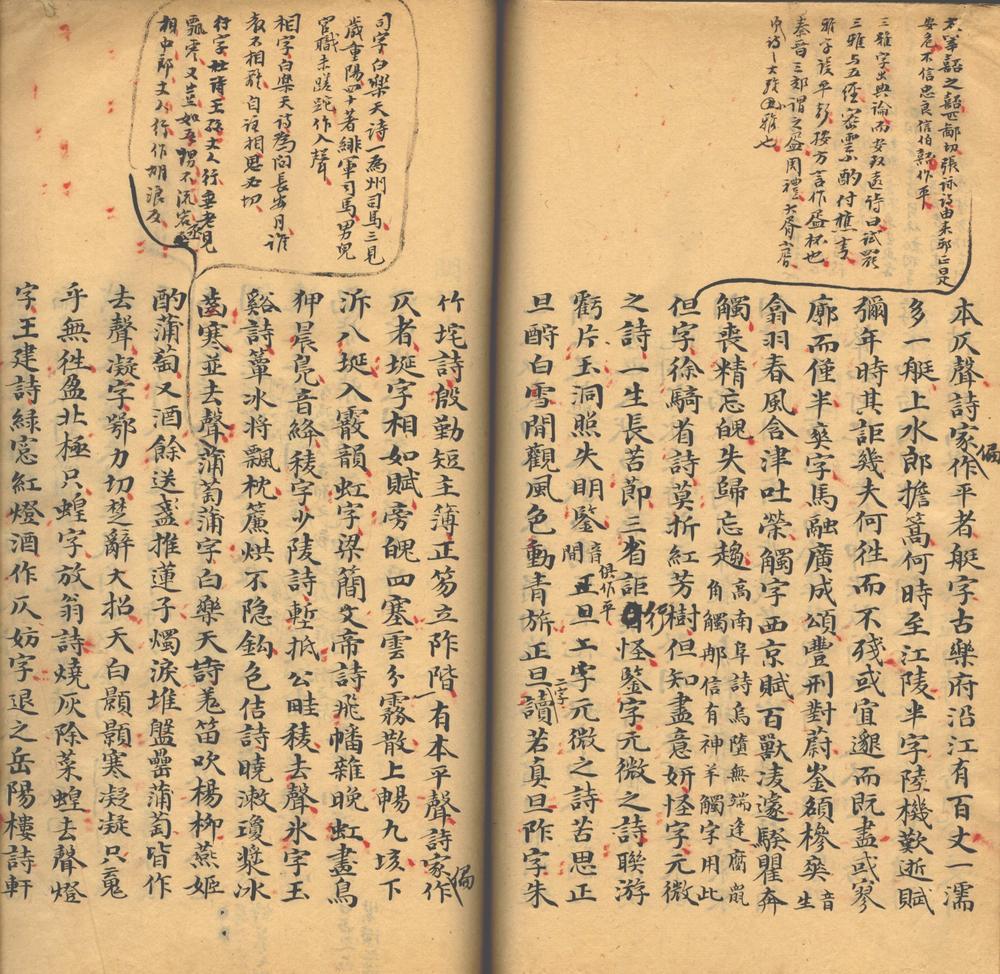 大軍詔之韶匹鄙切張詠詩由來邪正是
安危不信忠良信伯嚭作平
三雅字出典論而
三雅与五經
雅字設平聲按方言作盛杯也
秦晉三郊謂之盛周禮大胥
本仄聲詩家作平者艇字古樂府沿江有百丈一濡
多一艇上水郎擔篙何時至江陵半字陸機歎逝賦
彌年時其詎幾夫何徃而不殘或宜邈而既盡或寥
廓而僅半爽字馬融廣成頌豐彤對蔚崟頟槮爽音生
翕羽春風含津吐榮觸字西京賦百獸凌遽騤瞿奔
觸喪精忘魄失歸忘趨角觸高南阜詩烏隨無端逢腐鼠邮信有神羊觸字用此
但字徐騎省詩莫折紅芳樹但知盡意妍怪字元微
之詩一生長苦節三省詎行怪鑒字元微之詩聯游
虧片玉洞照失明鑒音間俱作平正旦二字元微之詩苦思正
旦酧白雪閒觀風色動青旂正旦二字讀若真旦阼字朱
司字白樂天詩一為州司馬三見
歲重陽四十著緋軍司馬男兒
官職未蹉跎作入聲
相字白樂天詩為問長安月誰
教不相離自注相思必切
行字杜詩王孫丈人行垂老見
飄零又豈如吾甥不流宕丞
相中郎丈人行作胡浪反
竹垞詩殷勤短主簿正笏立阼階有本平聲詩家作
仄者埏字相如賦旁魄四塞雲分霧散上暢九垓下
泝八埏入霰韻虹字梁簡文帝詩飛幡雜晚虹畫鳥
狎晨鳧音絳稜字少陵詩塹抵公畦稜去聲氷字玉
谿詩簟冰將飄枕簾烘不隐鈎色佶詩曉漱瓊漿冰
齒寒並去聲蒲萄蒲字白樂天詩羌笛吹楊柳燕姬
酌蒲萄又酒餘送盞推蓮子燭淚堆盤罍蒲萄皆作
去聲凝字鄂力切楚辭大招天白顥顥寒凝凝只䰟
乎無徃盈北極只蝗字放翁詩燒灰除菜蝗去聲燈
字王建詩緑窓紅燈酒作仄妨字退之岳陽樓詩軒